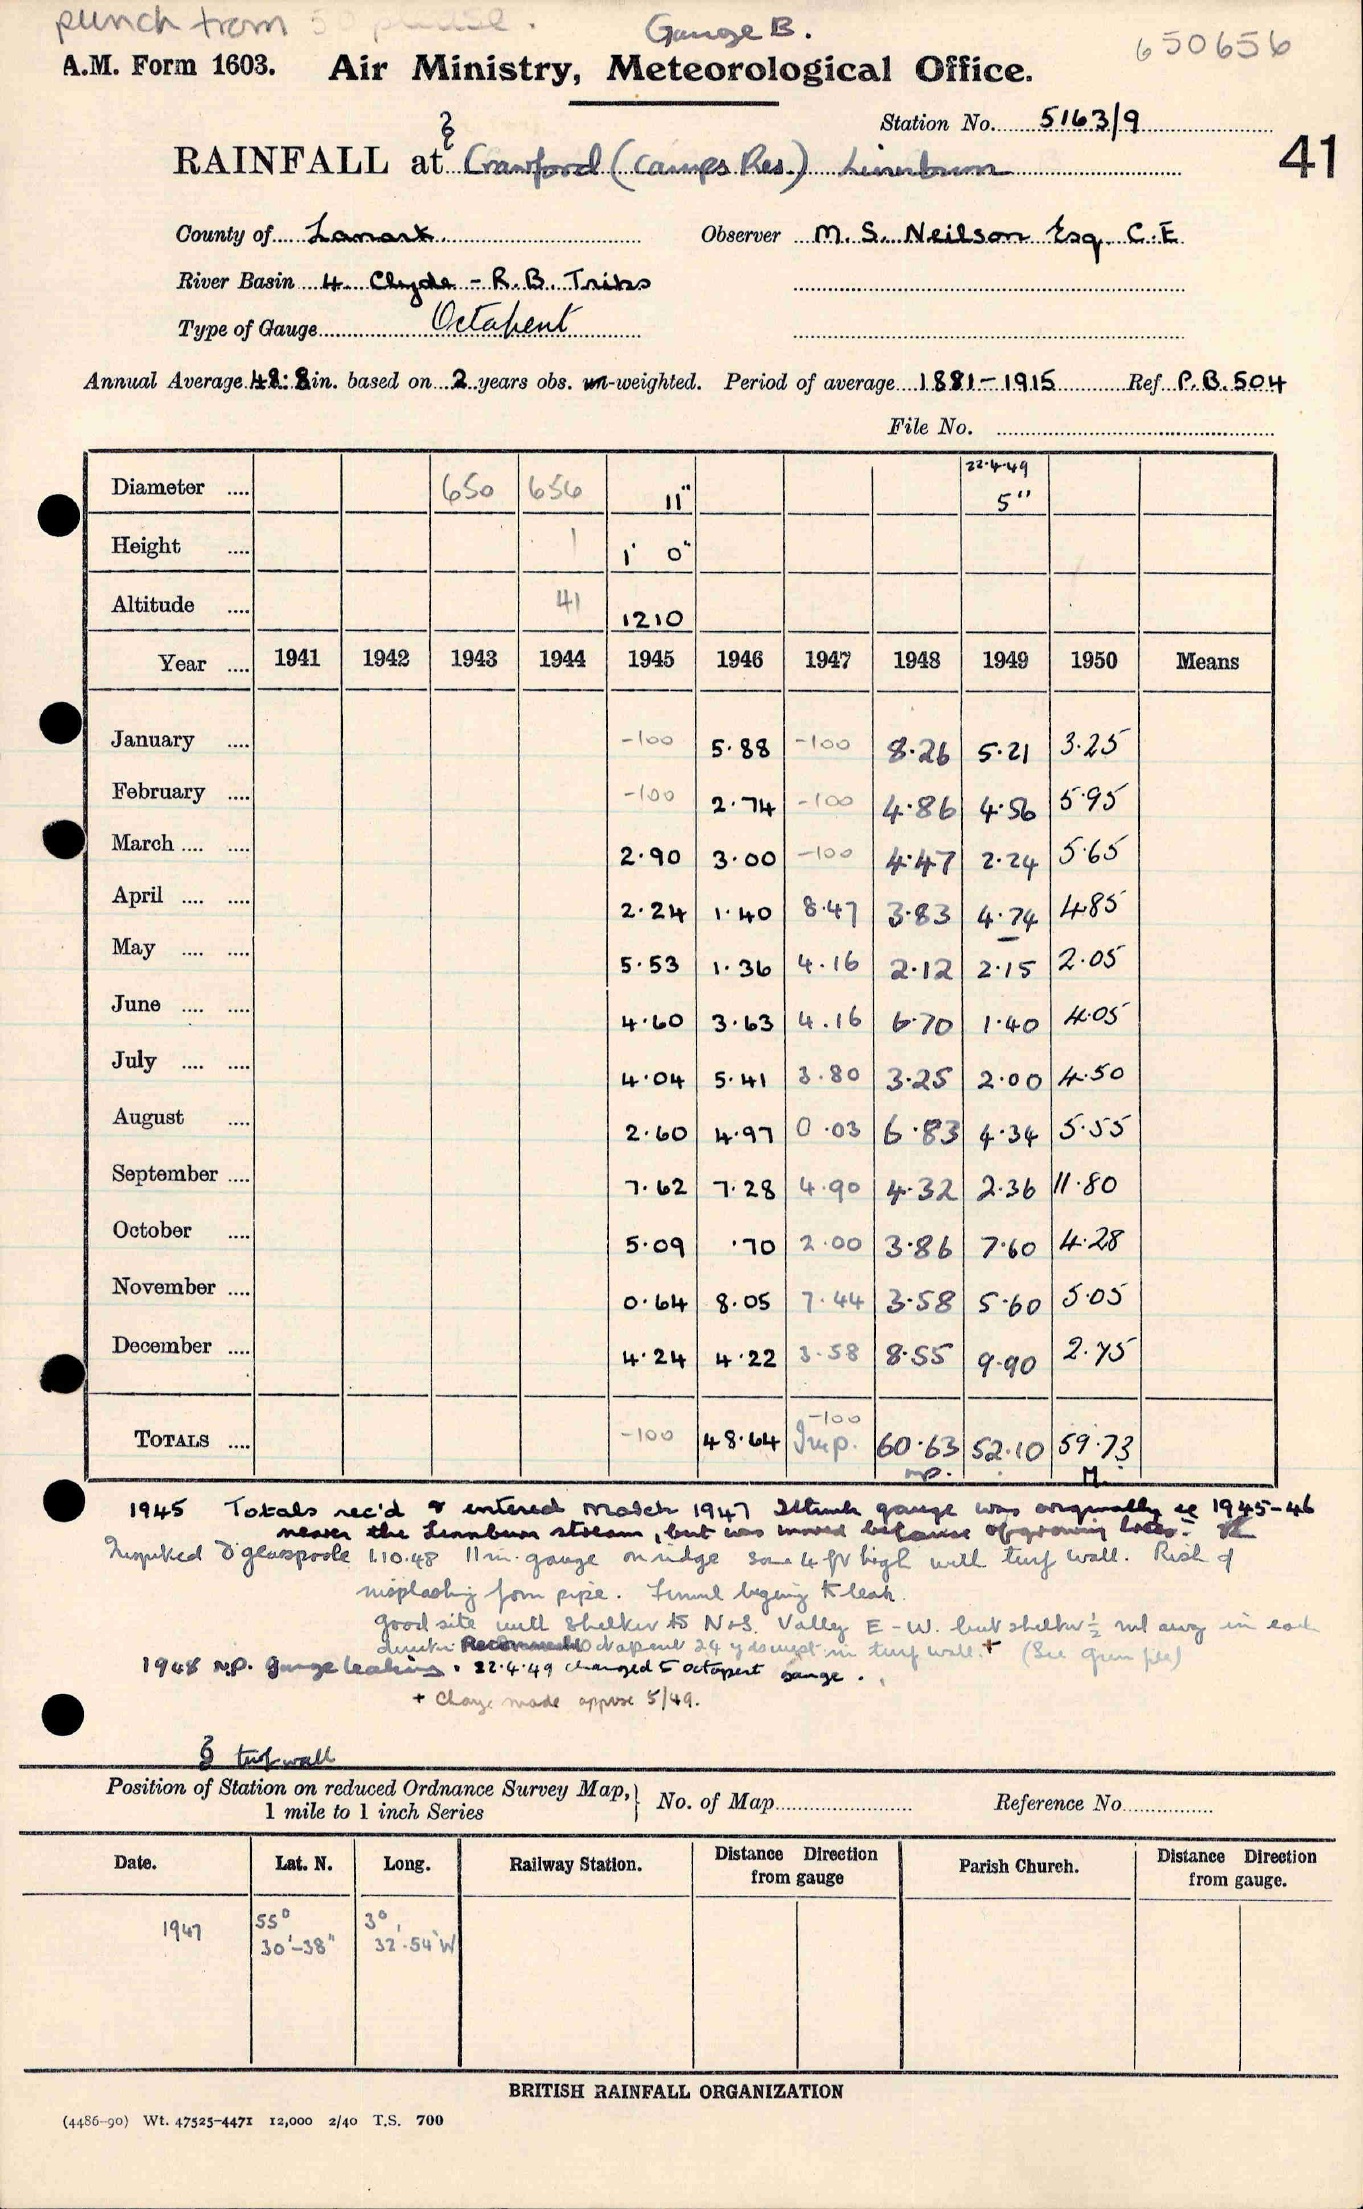 punch from 50 please.
Gauge B.
650656
A.M. Form 1603. Air Ministry, Meteorological Office.
Station No. 5163/9
41
RAINFALL at Crawford (Camps Res.) Linnburn
County of Lanark. Observer M. S. Neilson Esq. C.E
River Basin 4. Clyde - R.B. Tribs
Type of Gauge Octapent
Annual Average 48.8 in. based on 2 years obs. un-weighted. Period of average 1881-1915 Ref P.B. 504
File No.
22.4.49
Diameter .... 650 656 11" 5"
Height .... 1 1' 0"
Altitude .... 41 1210
Year .... 1941 1942 1943 1944 1945 1946 1947 1948 1949 1950 Means
January .... -100 5.88 -100 8.26 5.21 3.25
February .... -100 2.74 -100 4.86 4.56 5.95
March .... .... 2.90 3.00 -100 4.47 2.24 5.65
April .... .... 2.24 1.40 8.47 3.83 4.74 4.85
May .... .... 5.53 1.36 4.16 2.12 2.15 2.05
June .... .... 4.60 3.63 4.16 6.70 1.40 4.05
July .... .... 4.04 5.41 3.80 3.25 2.00 4.50
August .... 2.60 4.97 0.03 6.83 4.34 5.55
September .... 7.62 7.28 4.90 4.32 2.36 11.80
October .... 5.09 .70 2.00 3.86 7.60 4.28
November .... 0.64 8.05 7.44 3.58 5.60 5.05
December .... 4.24 4.22 3.58 8.55 9.90 2.75
-100
TOTALS .... -100 48.64 Imp. 60.63 52.10 59.73
np. M.
1945 Totals rec'd & entered March 1947 I think gauge was originally ie 1945-46
nearer the Linnburn stream, but was moved because of growing trees.
Inspected Dr Glasspoole 1.10.48 11 in. gauge on ridge some 4 ft high with turf wall. Risk of
insplashing from pipe. Funnel beginning to leak.
Good site with shelter to N+S. Valley E-W. but shelter ½ ml away in each
direction Octapent 24 yds in turf wall + (See green file)
1948 N.P. gauge leaking. 22.4.49 changed to octapent gauge.
+ Change made approx 5/49.
turf wall
Position of Station on reduced Ordnance Survey Map,
1 mile to 1 inch Series
No. of Map Reference No.
Date. Lat. N. Long. Railway Station. Distance Direction from gauge Parish Church. Distance Direction from gauge.
1947 55° 3°
30'-38" 32'.54"W
BRITISH RAINFALL ORGANIZATION
(4486-90) Wt. 47525-4471 12,000 2/40 T.S. 700